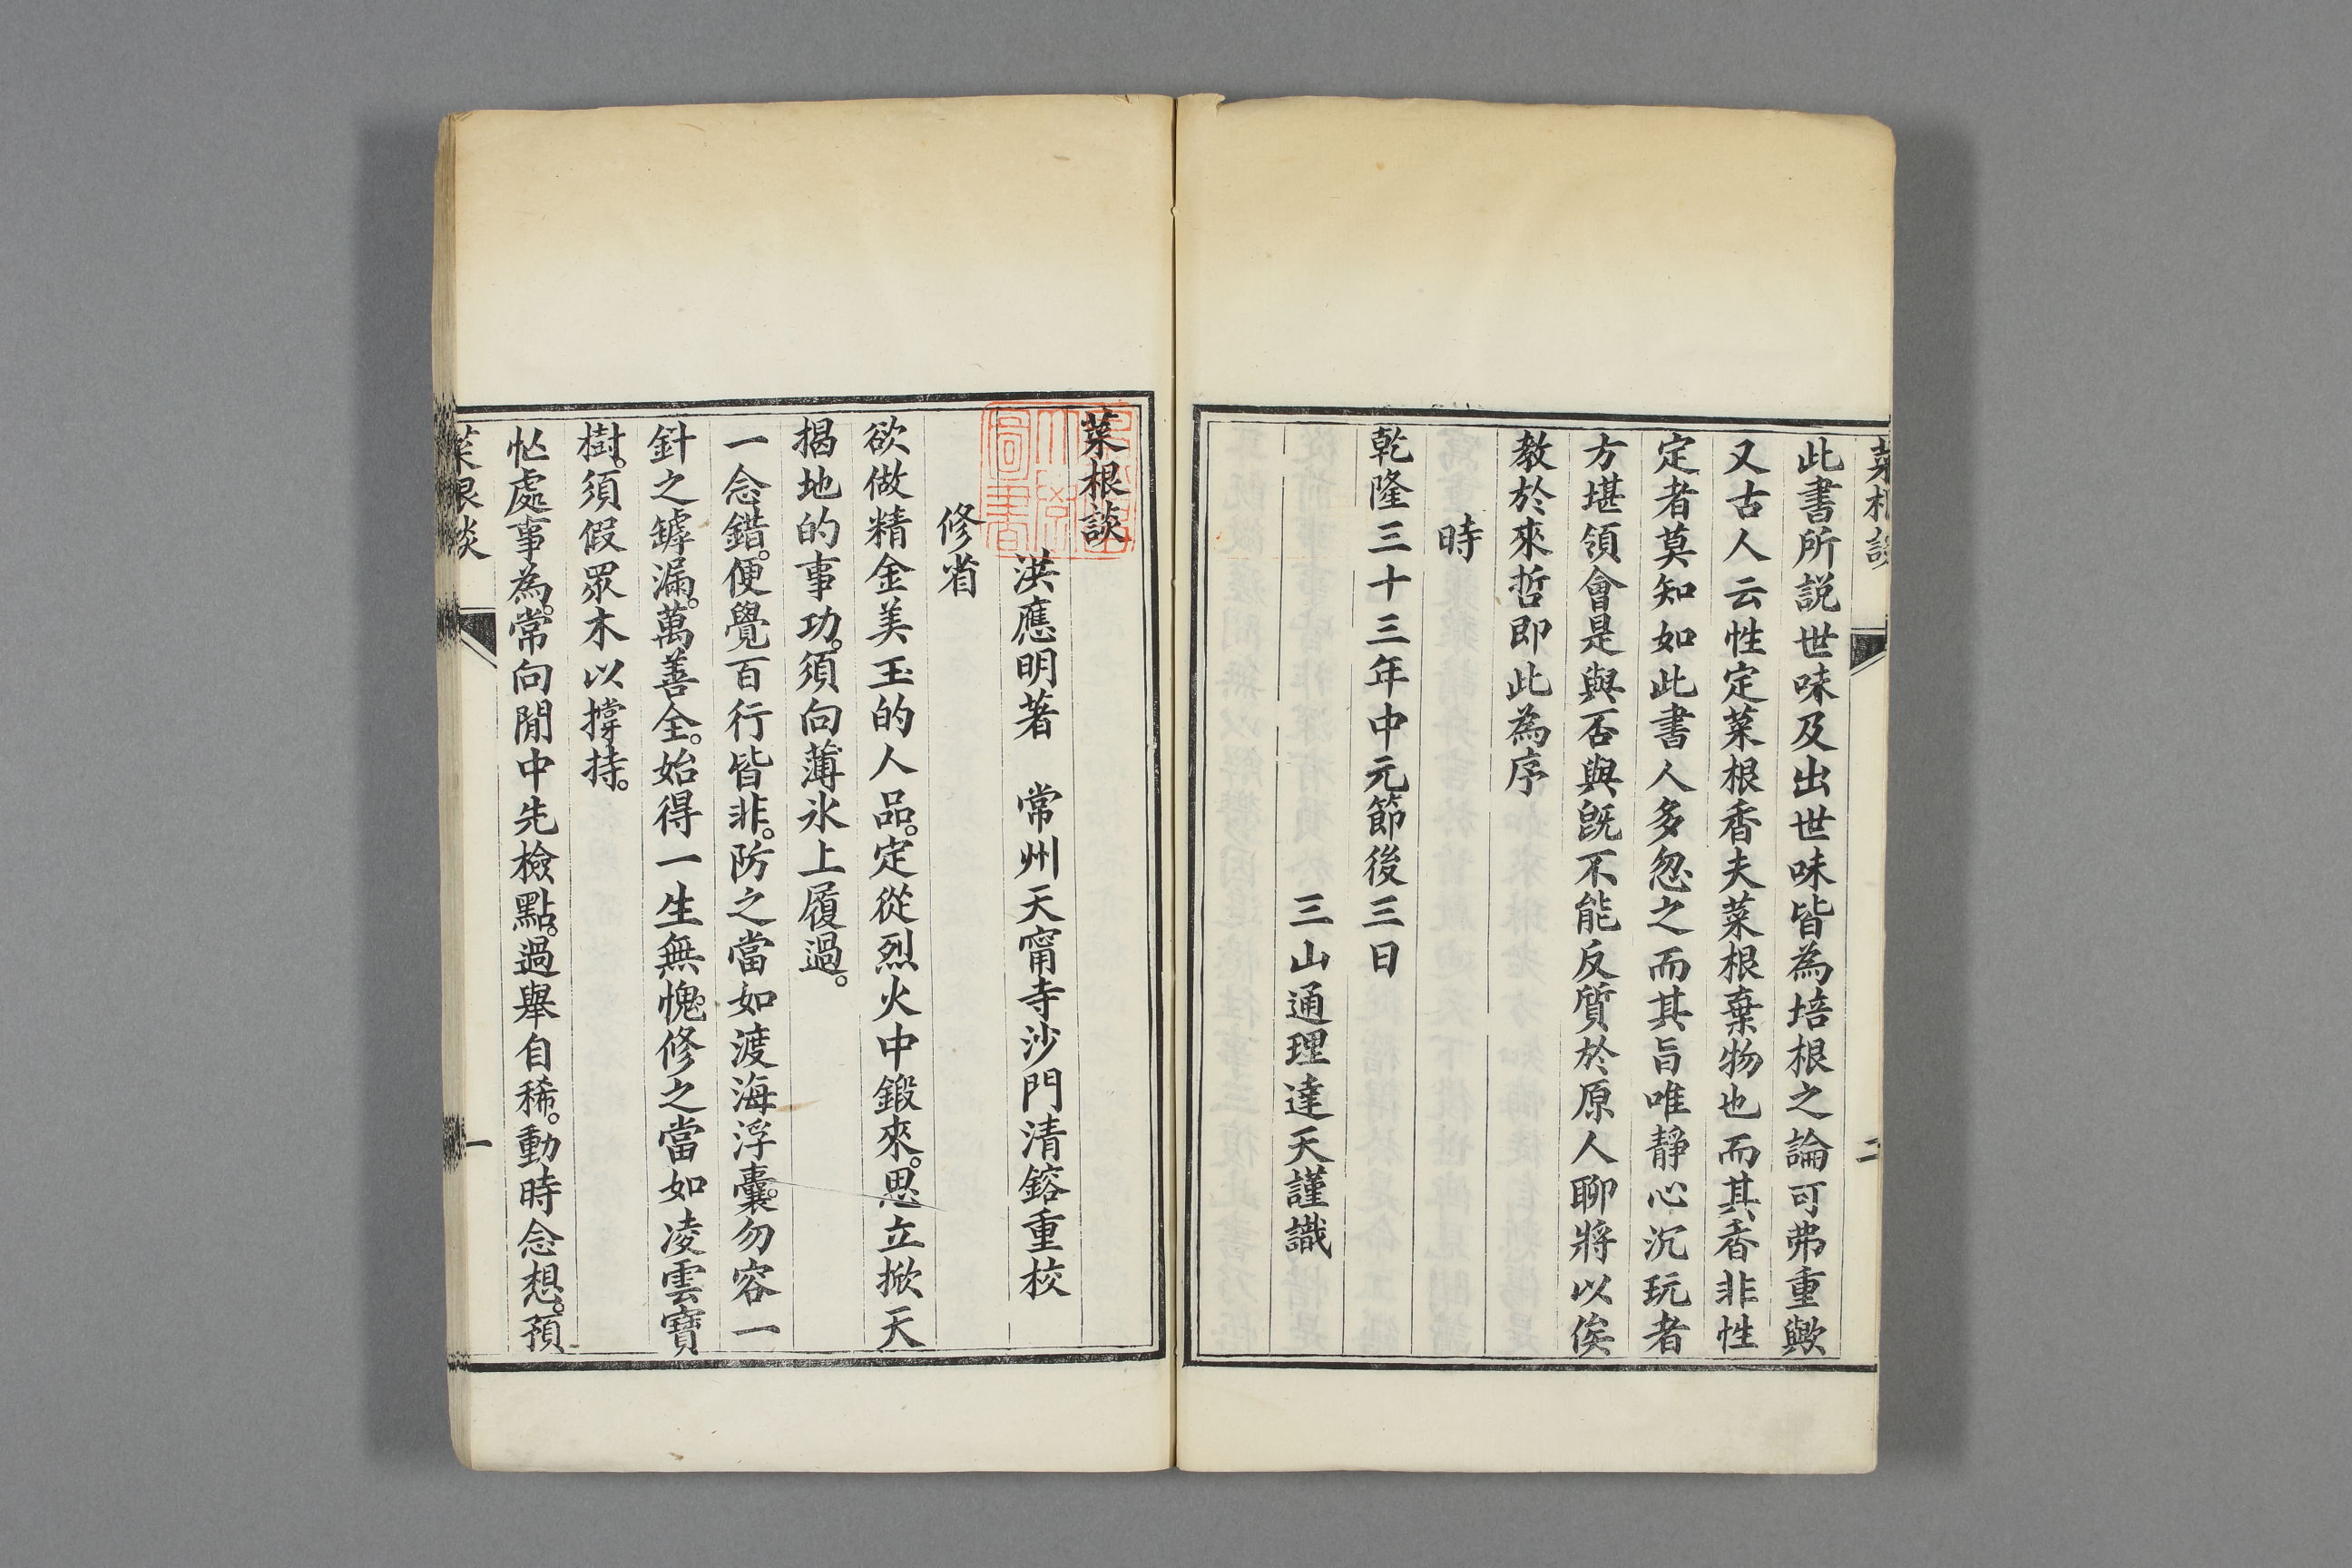 菜根談
二
此書所説世味及出世味皆為培根之論可弗重歟
又古人云性定菜根香夫菜根棄物也而其香非性
定者莫知如此書人多忽之而其旨唯靜心沉玩者
方堪領會是與否與既不能反質於原人聊將以俟
教於來哲即此為序
時
乾隆三十三年中元節後三日
三山通理達天謹識
菜根談
洪應明著　常州天甯寺沙門清鎔重校
修省
欲做精金美玉的人品。定從烈火中鍛來。思立掀天
揭地的事功。須向薄氷上履過。
一念錯。便覺百行皆非。防之當如渡海浮囊。勿容一
針之罅漏。萬善全。始得一生無愧。修之當如凌雲寶
樹。須假眾木以撐持。
忙處事為。常向閒中先檢點。過舉自稀。動時念想。預
菜根談
一